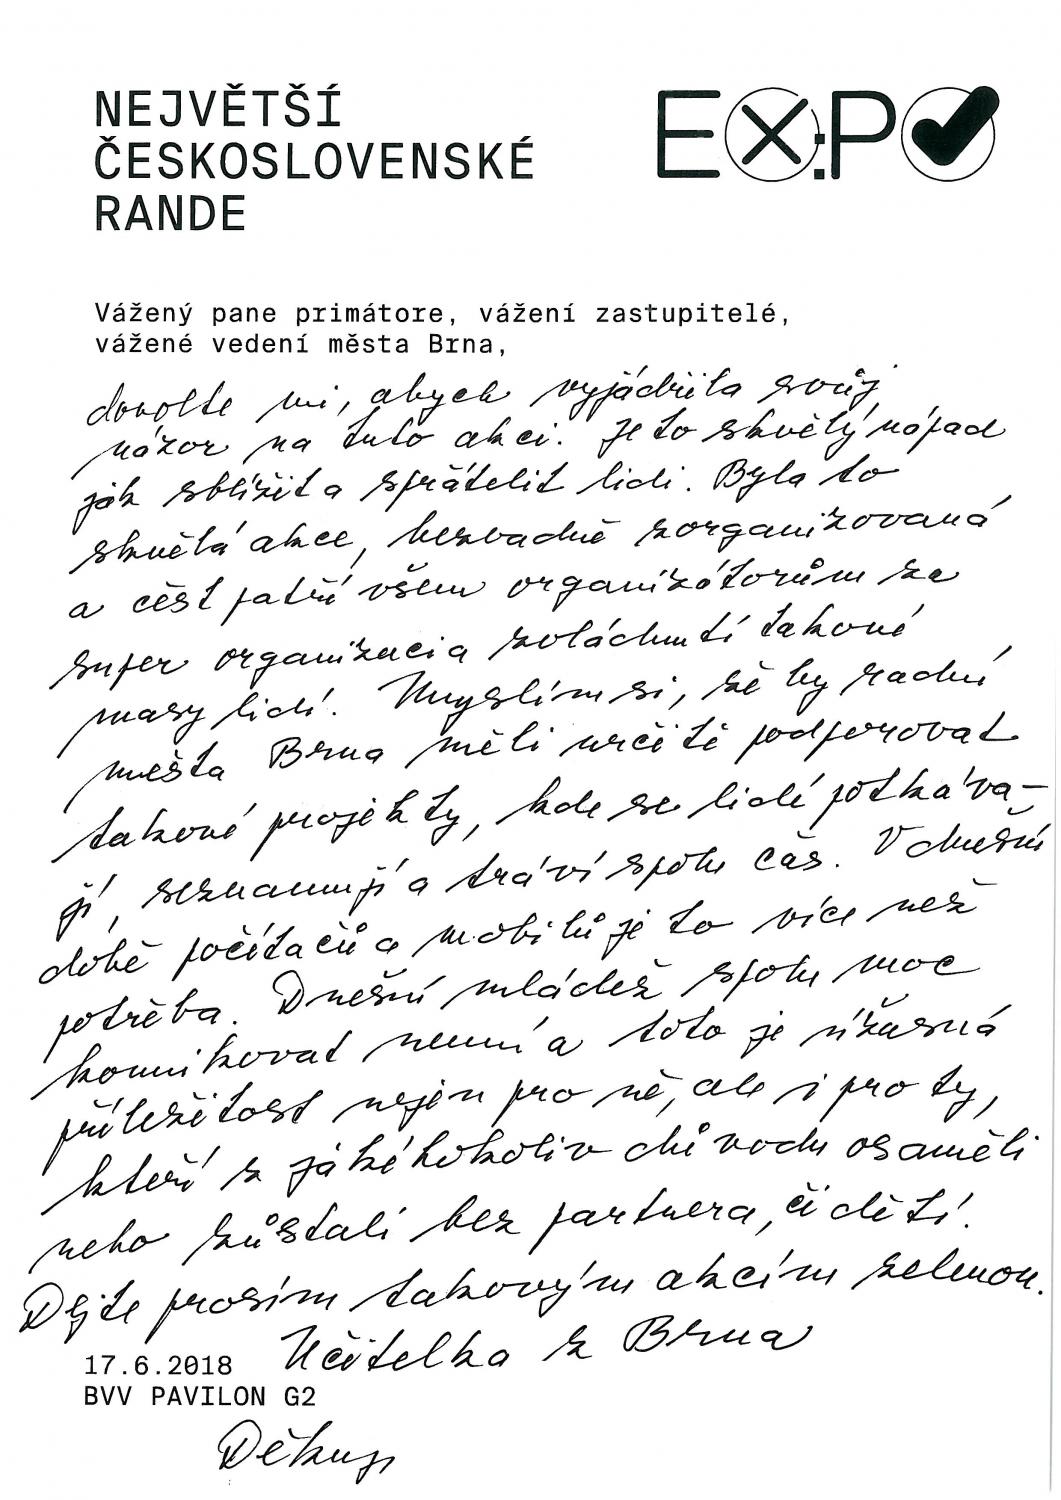 NEJVĚTŠÍ
ČESKOSLOVENSKÉ
RANDE
EX:PO
Vážený pane primátore, vážení zastupitelé,
vážené vedení města Brna,
dovolte mi, abych vyjádřila svůj
názor na tuto akci. Je to skvělý nápad
jak sblížit a spřátelit lidi. Byla to
skvělá akce, bezvadně zorganizovaná
a čest patří všem organizátorům za
super organizaci a zvládnutí takové
masy lidí. Umyslím si, že by radní
města Brna měli určitě podporovat
takové projekty, kde se lidé potkáva-
jí, seznamují a tráví spolu čas. V dnešní
době počítačů a mobilů je to více než
potřeba. Dnešní mládež spolu moc
komunikovat neumí a toto je úžasná
příležitost nejen pro ně, ale i pro ty,
kteří z jakéhokoliv důvodu osaměli
nebo zůstali bez partnera, či dětí.
Dejte prosím takovým akcím zelenou.
Učitelka z Brna
17.6.2018
BVV PAVILON G2
Děkuji